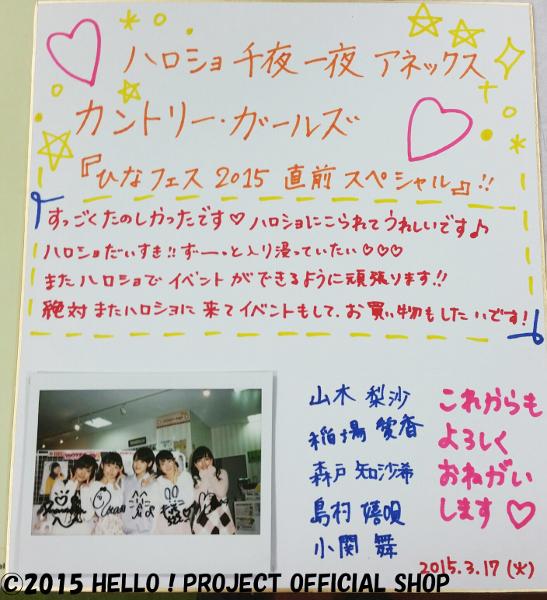 ハロショ千夜一夜 アネックス
カントリー・ガールズ
『ひなフェス 2015 直前 スペシャル』!!
すっごくたのしかったです♡ ハロショにこられてうれしいです♪
ハロショだいすき!! ずーっと入り浸っていたい♡♡♡
またハロショでイベントができるように頑張ります!!
絶対またハロショに来てイベントもして、お買い物もしたいです!
山木 梨沙
稲場 愛香
森戸 知沙希
島村 嬉唄
小関 舞
これからも
よろしく
おねがい
します♡
2015.3.17 (火)
©2015 HELLO ! PROJECT OFFICIAL SHOP